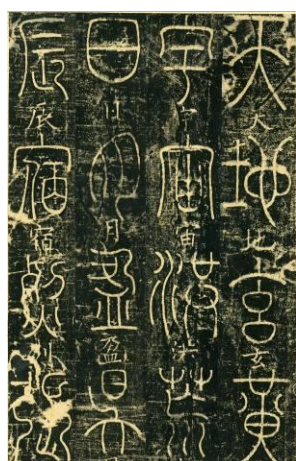 天天地地玄玄黃
宇宇宙宙洪洪荒
日日月月盈盈昃
辰辰宿宿列列張